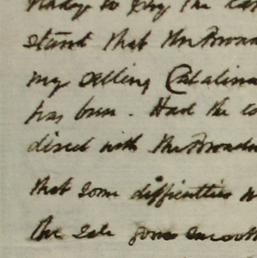 ready to buy the
stand that Mr Broad
my selling Catalina
has been. Had the
direct with Mr Broad
that some difficulties
the sale gone smooth